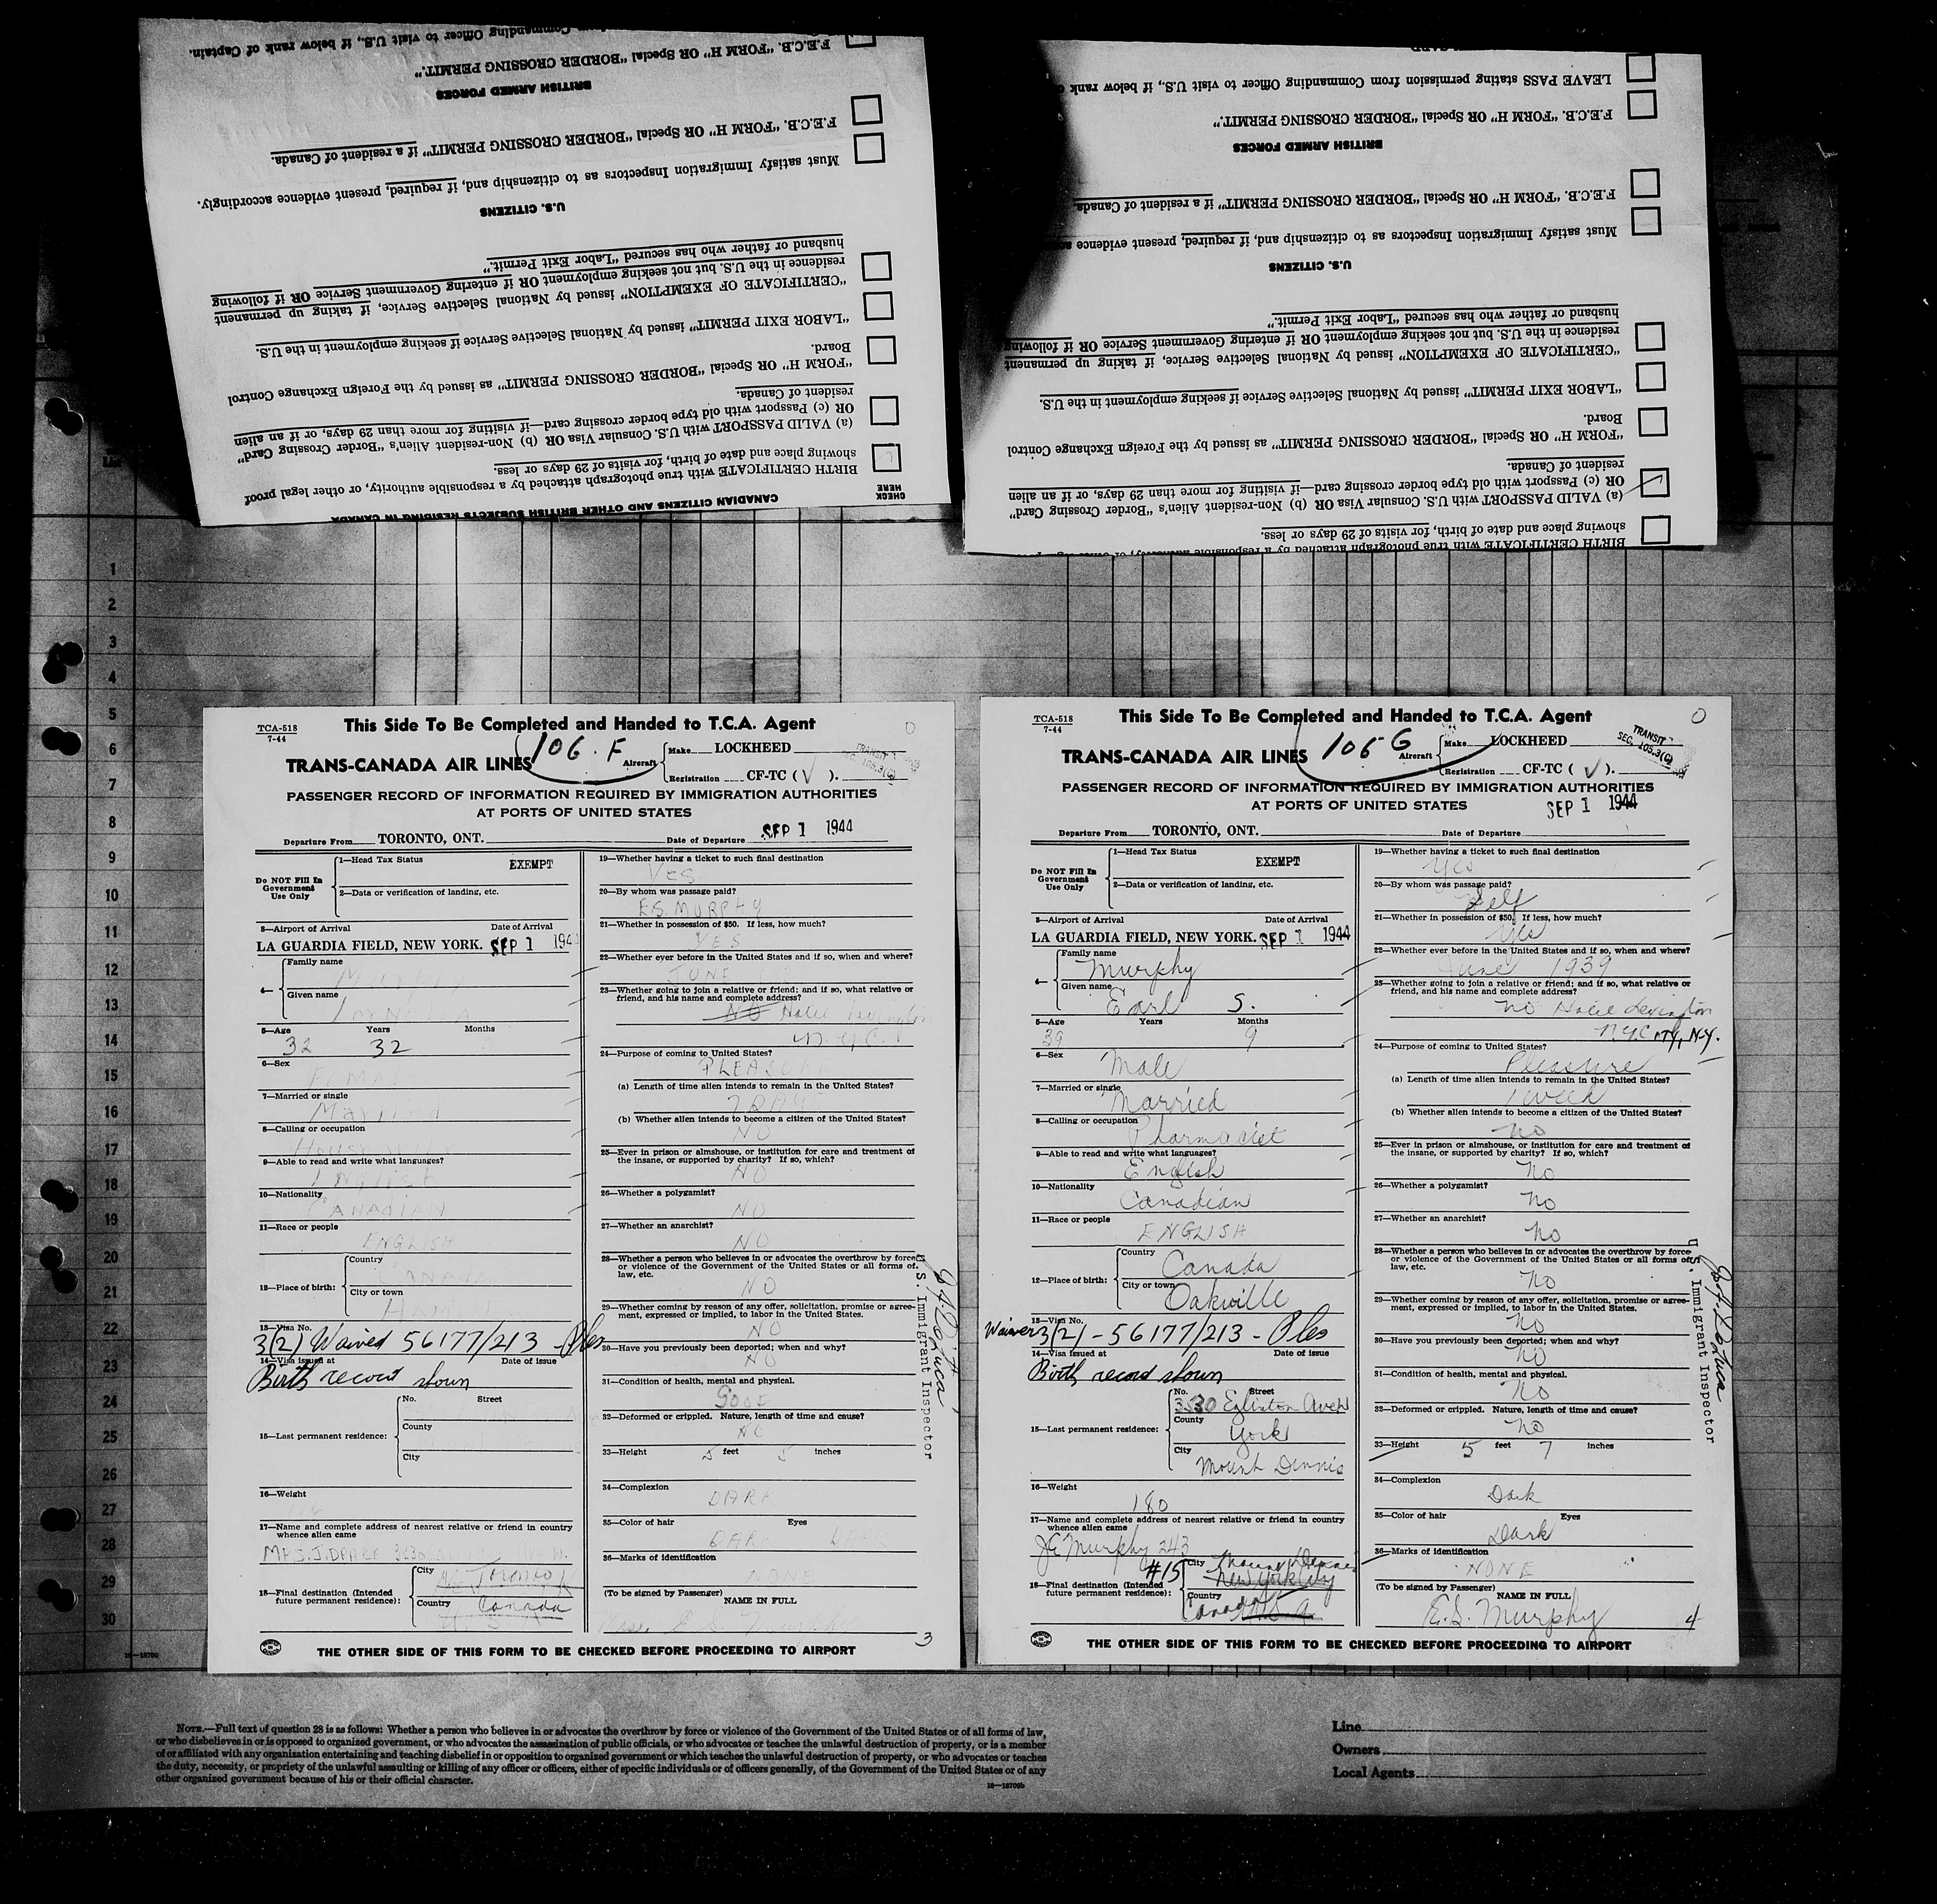 Commanding Officer to visit U.S., if below rank of Captain.
F.E.C.B. "FORM H" OR Special "BORDER CROSSING PERMIT."
BRITISH ARMED FORCES
F.E.C.B. "FORM H" OR Special "BORDER CROSSING PERMIT" if a resident of Canada.
Must satisfy Immigration Inspectors as to citizenship and, if required, present evidence accordingly.
U.S. CITIZENS
husband or father who has secured "Labor Exit Permit."
residence in the U.S. but not seeking employment OR if entering Government Service OR if following
"CERTIFICATE OF EXEMPTION" issued by National Selective Service, if taking up permanent
"LABOR EXIT PERMIT" issued by National Selective Service if seeking employment in the U.S.
Board.
"FORM H" OR Special "BORDER CROSSING PERMIT" as issued by the Foreign Exchange Control
resident of Canada.
OR (c) Passport with old type border crossing card—if visiting for more than 29 days, or if an alien
(a) VALID PASSPORT with U.S. Consular Visa OR (b) Non-resident Alien's "Border Crossing Card"
showing place and date of birth, for visits of 29 days or less.
BIRTH CERTIFICATE with true photograph attached by a responsible authority, or other legal proof
CHECK HERE
CANADIAN CITIZENS AND OTHER BRITISH SUBJECTS RESIDING IN CANADA
LEAVE PASS stating permission from Commanding Officer to visit U.S., if below rank
F.E.C.B. "FORM H" OR Special "BORDER CROSSING PERMIT."
BRITISH ARMED FORCES
F.E.C.B. "FORM H" OR Special "BORDER CROSSING PERMIT" if a resident of Canada.
Must satisfy Immigration Inspectors as to citizenship and, if required, present evidence
U.S. CITIZENS
husband or father who has secured "Labor Exit Permit."
residence in the U.S. but not seeking employment OR if entering Government Service OR if following
"CERTIFICATE OF EXEMPTION" issued by National Selective Service, if taking up permanent
"LABOR EXIT PERMIT" issued by National Selective Service if seeking employment in the U.S.
Board.
"FORM H" OR Special "BORDER CROSSING PERMIT" as issued by the Foreign Exchange Control
resident of Canada.
OR (c) Passport with old type border crossing card—if visiting for more than 29 days, or if an alien
(a) VALID PASSPORT with U.S. Consular Visa OR (b) Non-resident Alien's "Border Crossing Card"
showing place and date of birth, for visits of 29 days or less.
BIRTH CERTIFICATE with true photograph attached by a responsible authority, or other
1
2
3
4
5
6
7
8
9
10
11
12
13
14
15
16
17
18
19
20
21
22
23
24
25
26
27
28
29
30
TCA-518
7-44
This Side To Be Completed and Handed to T.C.A. Agent
TRANS-CANADA AIR LINES
106. F
Aircraft
Make LOCKHEED
Registration CF-TC ( √ ).
PASSENGER RECORD OF INFORMATION REQUIRED BY IMMIGRATION AUTHORITIES
AT PORTS OF UNITED STATES
Departure From TORONTO, ONT. Date of Departure SEP 1 1944
Do NOT Fill In Government Use Only
1—Head Tax Status EXEMPT
2—Data or verification of landing, etc.
3—Airport of Arrival Date of Arrival
LA GUARDIA FIELD, NEW YORK. SEP 1 194
4— Family name
Given name
5—Age Years Months
32 32
6—Sex
7—Married or single
Married
8—Calling or occupation
9—Able to read and write what languages?
10—Nationality
CANADIAN
11—Race or people
ENGLISH
12—Place of birth: Country
City or town
13—Visa No.
3(2) Waived 56177/213 - Ples
14—Visa issued at Date of issue
Birth record shown
15—Last permanent residence: No. Street
County
City
16—Weight
17—Name and complete address of nearest relative or friend in country
whence alien came
MRS. J. DRAKE
18—Final destination (Intended
future permanent residence): City Toronto
Country Canada
19—Whether having a ticket to such final destination
YES
20—By whom was passage paid?
E.S. MURPHY
21—Whether in possession of $50. If less, how much?
YES
22—Whether ever before in the United States and if so, when and where?
JUNE
23—Whether going to join a relative or friend; and if so, what relative or
friend, and his name and complete address?
NO Hotel Lexington
N.Y.C.
24—Purpose of coming to United States?
PLEASURE
(a) Length of time alien intends to remain in the United States?
(b) Whether alien intends to become a citizen of the United States?
NO
25—Ever in prison or almshouse, or institution for care and treatment of
the insane, or supported by charity? If so, which?
NO
26—Whether a polygamist?
NO
27—Whether an anarchist?
NO
28—Whether a person who believes in or advocates the overthrow by force
or violence of the Government of the United States or all forms of
law, etc.
NO
29—Whether coming by reason of any offer, solicitation, promise or agree-
ment, expressed or implied, to labor in the United States.
NO
30—Have you previously been deported; when and why?
NO
31—Condition of health, mental and physical.
GOOD
32—Deformed or crippled. Nature, length of time and cause?
NO
33—Height 5 feet 5 inches
34—Complexion
DARK
35—Color of hair Eyes
DARK
36—Marks of identification
NONE
(To be signed by Passenger) NAME IN FULL
3
U.S. Immigrant Inspector
THE OTHER SIDE OF THIS FORM TO BE CHECKED BEFORE PROCEEDING TO AIRPORT
TCA-518
7-44
This Side To Be Completed and Handed to T.C.A. Agent
TRANS-CANADA AIR LINES
106 G
Aircraft
Make LOCKHEED
Registration CF-TC ( √ ).
TRANSIT
SEC. 105.3(C)
PASSENGER RECORD OF INFORMATION REQUIRED BY IMMIGRATION AUTHORITIES
AT PORTS OF UNITED STATES
SEP 1 1944
Departure From TORONTO, ONT. Date of Departure
Do NOT Fill In Government Use Only
1—Head Tax Status EXEMPT
2—Data or verification of landing, etc.
3—Airport of Arrival Date of Arrival
LA GUARDIA FIELD, NEW YORK. SEP 1 1944
4— Family name
Murphy
Given name
Earl S.
5—Age Years Months
39 9
6—Sex
Male
7—Married or single
Married
8—Calling or occupation
Pharmacist
9—Able to read and write what languages?
English
10—Nationality
Canadian
11—Race or people
ENGLISH
12—Place of birth: Country
Canada
City or town
Oakville
13—Visa No.
Waiver 3(2) - 56177/213 - Ples
14—Visa issued at Date of issue
Birth record shown
15—Last permanent residence: No. Street
3530 Eglinton Ave W
County
York
City
Mount Dennis
16—Weight
180
17—Name and complete address of nearest relative or friend in country
whence alien came
J E Murphy 243
#15
18—Final destination (Intended
future permanent residence): City Mount Dennis
New York City
Country
Canada U.S.A.
19—Whether having a ticket to such final destination
Yes
20—By whom was passage paid?
Self
21—Whether in possession of $50. If less, how much?
Yes
22—Whether ever before in the United States and if so, when and where?
June 1939
23—Whether going to join a relative or friend; and if so, what relative or
friend, and his name and complete address?
no Hotel Lexington
N.Y.C NY, N.Y.
24—Purpose of coming to United States?
Pleasure
(a) Length of time alien intends to remain in the United States?
1 week
(b) Whether alien intends to become a citizen of the United States?
no
25—Ever in prison or almshouse, or institution for care and treatment of
the insane, or supported by charity? If so, which?
no
26—Whether a polygamist?
no
27—Whether an anarchist?
no
28—Whether a person who believes in or advocates the overthrow by force
or violence of the Government of the United States or all forms of
law, etc.
no
29—Whether coming by reason of any offer, solicitation, promise or agree-
ment, expressed or implied, to labor in the United States.
no
30—Have you previously been deported; when and why?
no
31—Condition of health, mental and physical.
no
32—Deformed or crippled. Nature, length of time and cause?
no
33—Height 5 feet 7 inches
34—Complexion
Dark
35—Color of hair Eyes
Dark
36—Marks of identification
NONE
(To be signed by Passenger) NAME IN FULL
E.S. Murphy 4
U.S. Immigrant Inspector
THE OTHER SIDE OF THIS FORM TO BE CHECKED BEFORE PROCEEDING TO AIRPORT
NOTE.—Full text of question 28 is as follows: Whether a person who believes in or advocates the overthrow by force or violence of the Government of the United States or of all forms of law,
or who disbelieves in or is opposed to organized government, or who advocates the assassination of public officials, or who advocates or teaches the unlawful destruction of property, or is a member
of or affiliated with any organization entertaining and teaching disbelief in or opposition to organized government or which teaches the unlawful destruction of property, or who advocates or teaches
the duty, necessity, or propriety of the unlawful assaulting or killing of any officer or officers, either of specific individuals or of officers generally, of the Government of the United States or of any
other organized government because of his or their official character.
Line
Owners
Local Agents